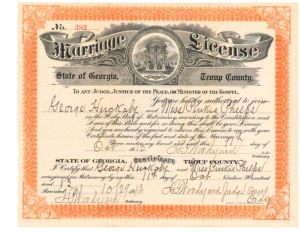 No. 382
Marriage License
State of Georgia, Troup County.
TO ANY JUDGE, JUSTICE OF THE PEACE, OR MINISTER OF THE GOSPEL.
You are hereby authorized to join
George Huckaby and Miss Pinkie Phelps
in the Holy State of Matrimony according to the Constitution and
Laws of this State and for so doing this shall be your License.
And you are hereby required to return this License to me with your
Certificate hereon of the fact and date of the Marriage.
Given under my hand and seal this 11th day of
Oct 1913
STATE OF GEORGIA, CERTIFICATE TROUP COUNTY.
I Certify that George Huckaby and Miss Pinkie Phelps
were joined in Matrimony by me this 11th day of Oct Nineteen Hundred
and 13
10/29/13